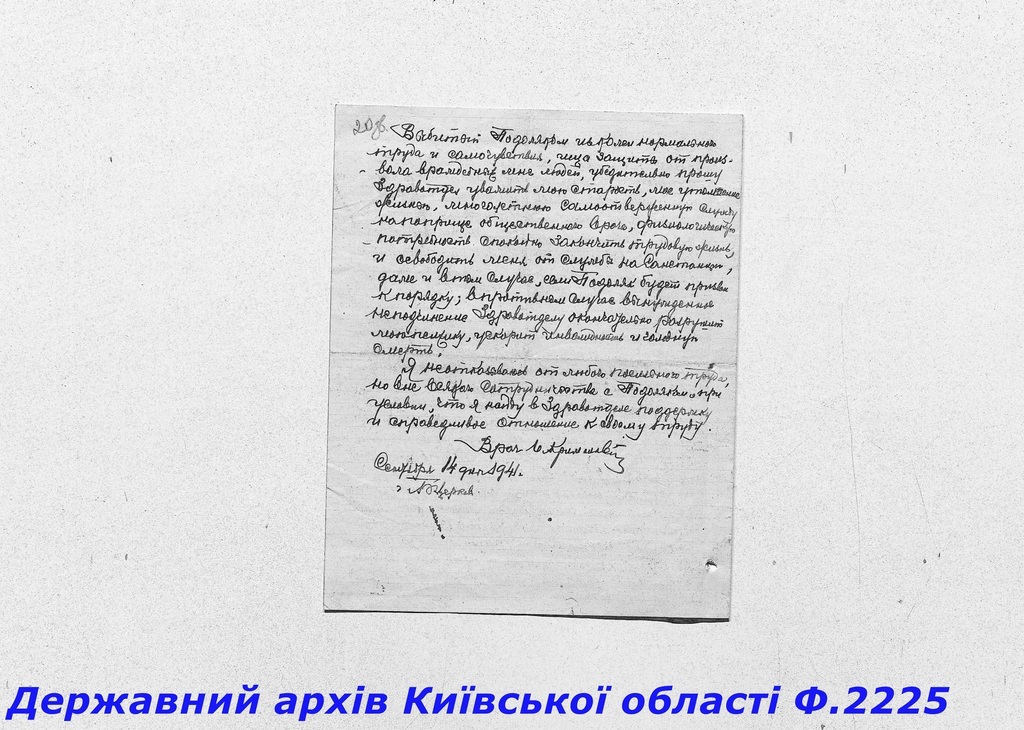 20 об.
Выбитый Подоляком из колеи нормального
труда и самочувствия, ища защиты от произ-
вола враждебных мне людей, убедительно прошу
Здравотдел уважить мою старость, мое утомление
жизнью, многолетнюю самоотверженную службу
на поприще общественного врача, физиологическую
потребность спокойно закончить трудовую жизнь,
и освободить меня от службы на Санстанции,
даже и в том случае, если Подоляк будет призван
к порядку; в противном случае вынужденное
неподчинение Здравотделу окончательно разрушит
мою психику, ускорит инвалидность и голодную
смерть.
Я не отказываюсь от любого посильного труда,
но вне всякого сотрудничества с Подоляком, при
условии, что я найду в Здравотделе поддержку
и справедливое отношение к своему труду.
Врач
Сентября 14 дня 1941.
г. Б Церковь.
Державний архів Київської області Ф.2225